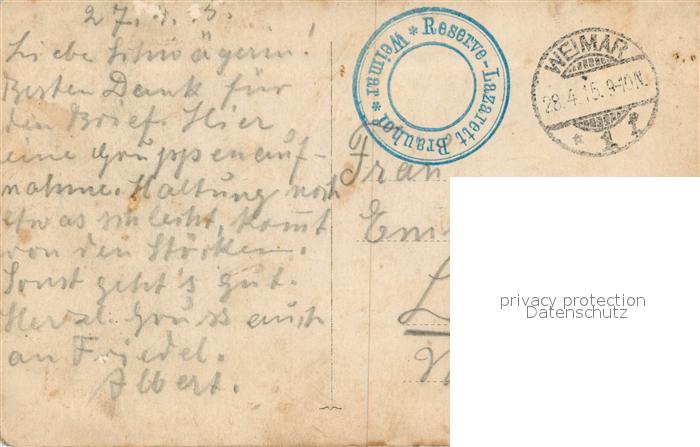 27. 4. 15.
Liebe Schwägerin!
Besten Dank für
den Brief. Hier
eine Gruppenauf-
nahme. Haltung noch
etwas schlecht, kommt
von den Stöcken.
Sonst geht's gut.
Herzl. Gruss auch
an Friedel.
Albert.
* Reserve-Lazarett Brauhof * Weimar
WEIMAR
28.4.15. 9-10N.
* 1 f
Frau
privacy protection
Datenschutz